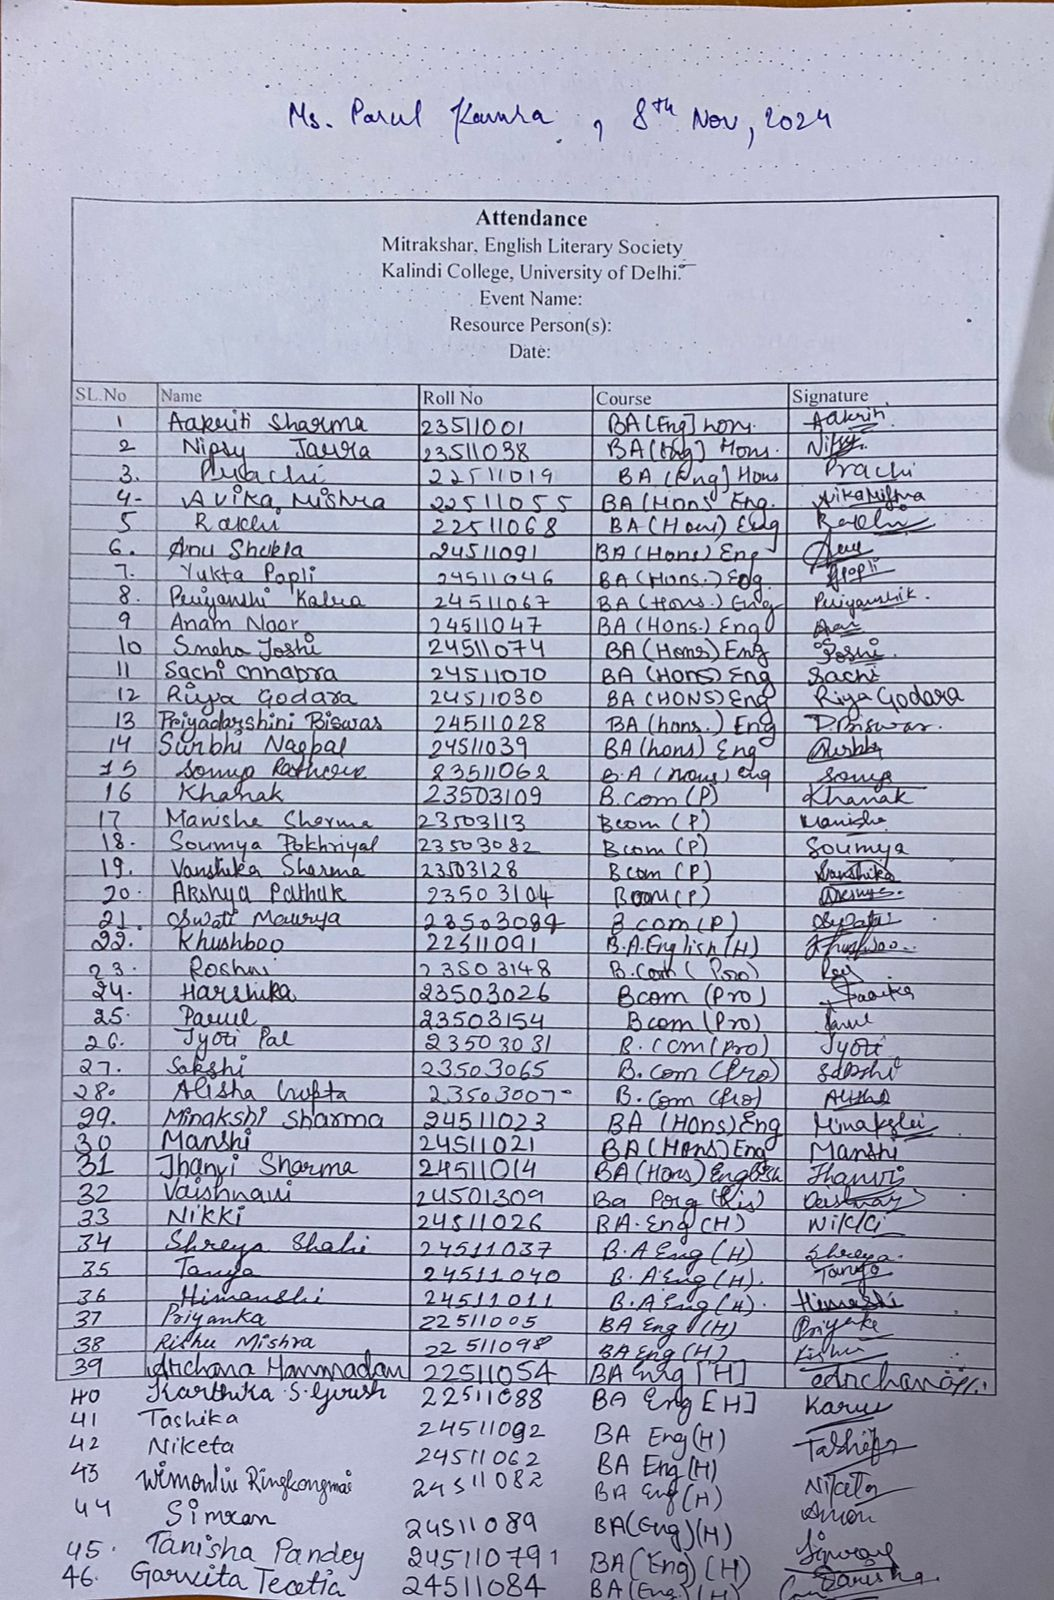 Ms. Parul Kamra, 8th Nov, 2024
Attendance
Mitrakshar, English Literary Society
Kalindi College, University of Delhi.
Event Name:
Resource Person(s):
Date:
SL.No Name Roll No Course Signature
1 Aakriti Sharma 23511001 BA(Eng] hons. Aakriti
2 Nipsy Jaura 23511038 BA(Eng] Hons.
3. Prachi 22511019 BA (Eng] Hons Prachi
4- Avika Mishra 22511055 BA(Hons Eng. Avika Mishra
5 Rakhi 22511068 BA(Hons) Eng Rakhi
6. Anu Shukla 24511091 BA(Hons) Eng Anu
7. Yukta Popli 24511046 BA(Hons.) Eng. YPopli
8. Priyanshi Kalra 24511067 BA(Hons.) Eng
9 Anam Noor 24511047 BA(Hons.) Eng
10 Sneha Joshi 24511074 BA(Hons) Eng Joshi
11 Sachi Chhabra 24511070 BA (HONS) Eng Sachi
12 Riya Godara 24511030 BA (HONS) Eng Riya Godara
13 Priyadarshini Biswas 24511028 BA(hons.) Eng P.Biswas.
14 Surbhi Nagpal 24511039 BA(hons) Eng Surbhi
15 Somya Rathore 23511062 B.A (hons) Eng Somya
16 Khanak 23503109 B.com (P) Khanak
17 Manisha Sharma 23503113 Bcom (P) Manisha
18. Soumya Pokhriyal 23503082 Bcom (P) Soumya
19. Vanshika Sharma 23503128 Bcom (P) Vanshika
20. Akshya Pathak 23503104 Bcom(P)
21. Swati Maurya 23503084 B.com(P)
22. Khushboo 22511091 B.A.English(H) Khushboo..
23. Roshni 23503148 B.Com( Pro)
24. Harshika 23503026 Bcom (Pro)
25. Parul 23503154 Bcom (Pro) Parul
26. Jyoti Pal 23503031 B.com(pro) Jyoti
27. Sakshi 23503065 B.com (Pro) Sakshi
28. Alisha Gupta 23503007- B.com (Pro) Alisha
29. Minakshi Sharma 24511023 BA (Hons)Eng Minakshi
30 Manshi 24511021 BA(HONS)Eng Manshi
31 Jhanvi Sharma 24511014 BA(Hons) English Jhanvi
32 Vaishnavi 24501309 Ba Prog
33 NIKKI 24511026 BA.Eng(H) Nikki
34 Shreya Shahi 24511037 B.A Eng (H) Shreya.
35 Tanya 24511040 B.A Eng(H). Tanya
36 Himanshi 24511011 B.A Eng(H). Himanshi
37 Priyanka 22511005 BA Eng (H) Priyanka
38 Rishu Mishra 22511098 BA Eng (H) Rishu
39 Archana Hammadan 22511054 BA Eng [H] Archana
40 Karthika S. Girish 22511088 BA Eng [H]
41 Tashika 24511092 BA Eng(H) Tashika
42 Niketa 24511062 BA Eng(H) Niketa
43 Wimonliu Ringkongmai 24511082 BA Eng(H)
44 Simran 24511089 BA(Eng)(H) Simran
45. Tanisha Pandey 245110791 BA(Eng)(H) Tanisha
46. Garvita Teotia 24511084 BA(Eng)(H)